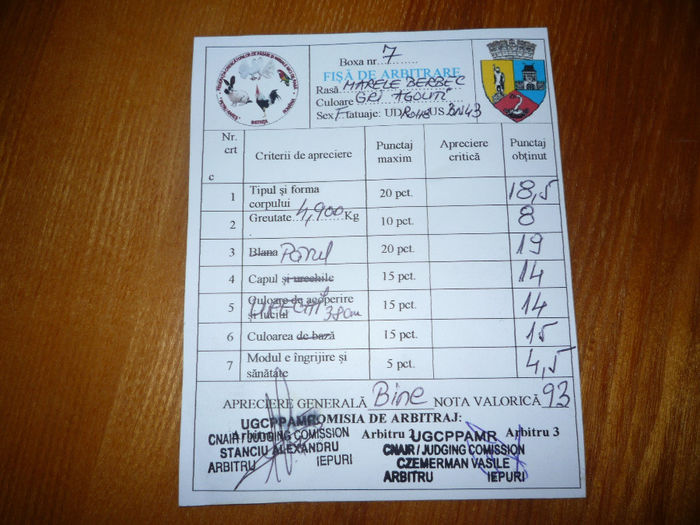 Boxa nr. 7
FIȘĂ DE ARBITRARE
Rasă MARELE BERBEC
Culoare GRI AGOUTI
Sex F tatuaje: UD RO118 US BN43
Nr. crt Criterii de apreciere Punctaj maxim Apreciere critică Punctaj obținut
c
1 Tipul și forma corpului 20 pct. 18,5
2 Greutate 4,900 Kg 10 pct. 8
3 Blana Părul 20 pct. 19
4 Capul și urechile 15 pct. 14
5 Culoare de acoperire și luciul URECHI 38cm 15 pct. 14
6 Culoarea de bază 15 pct. 15
7 Modul e îngrijire și sănătate 5 pct. 4,5
APRECIERE GENERALĂ Bine NOTA VALORICĂ 93
COMISIA DE ARBITRAJ:
Arbitru 2 Arbitru 3
UGCPPAMR
CNAIR / JUDGING COMISSION
STANCIU ALEXANDRU
ARBITRU IEPURI
UGCPPAMR
CNAIR / JUDGING COMISSION
CZEMERMAN VASILE
ARBITRU IEPURI